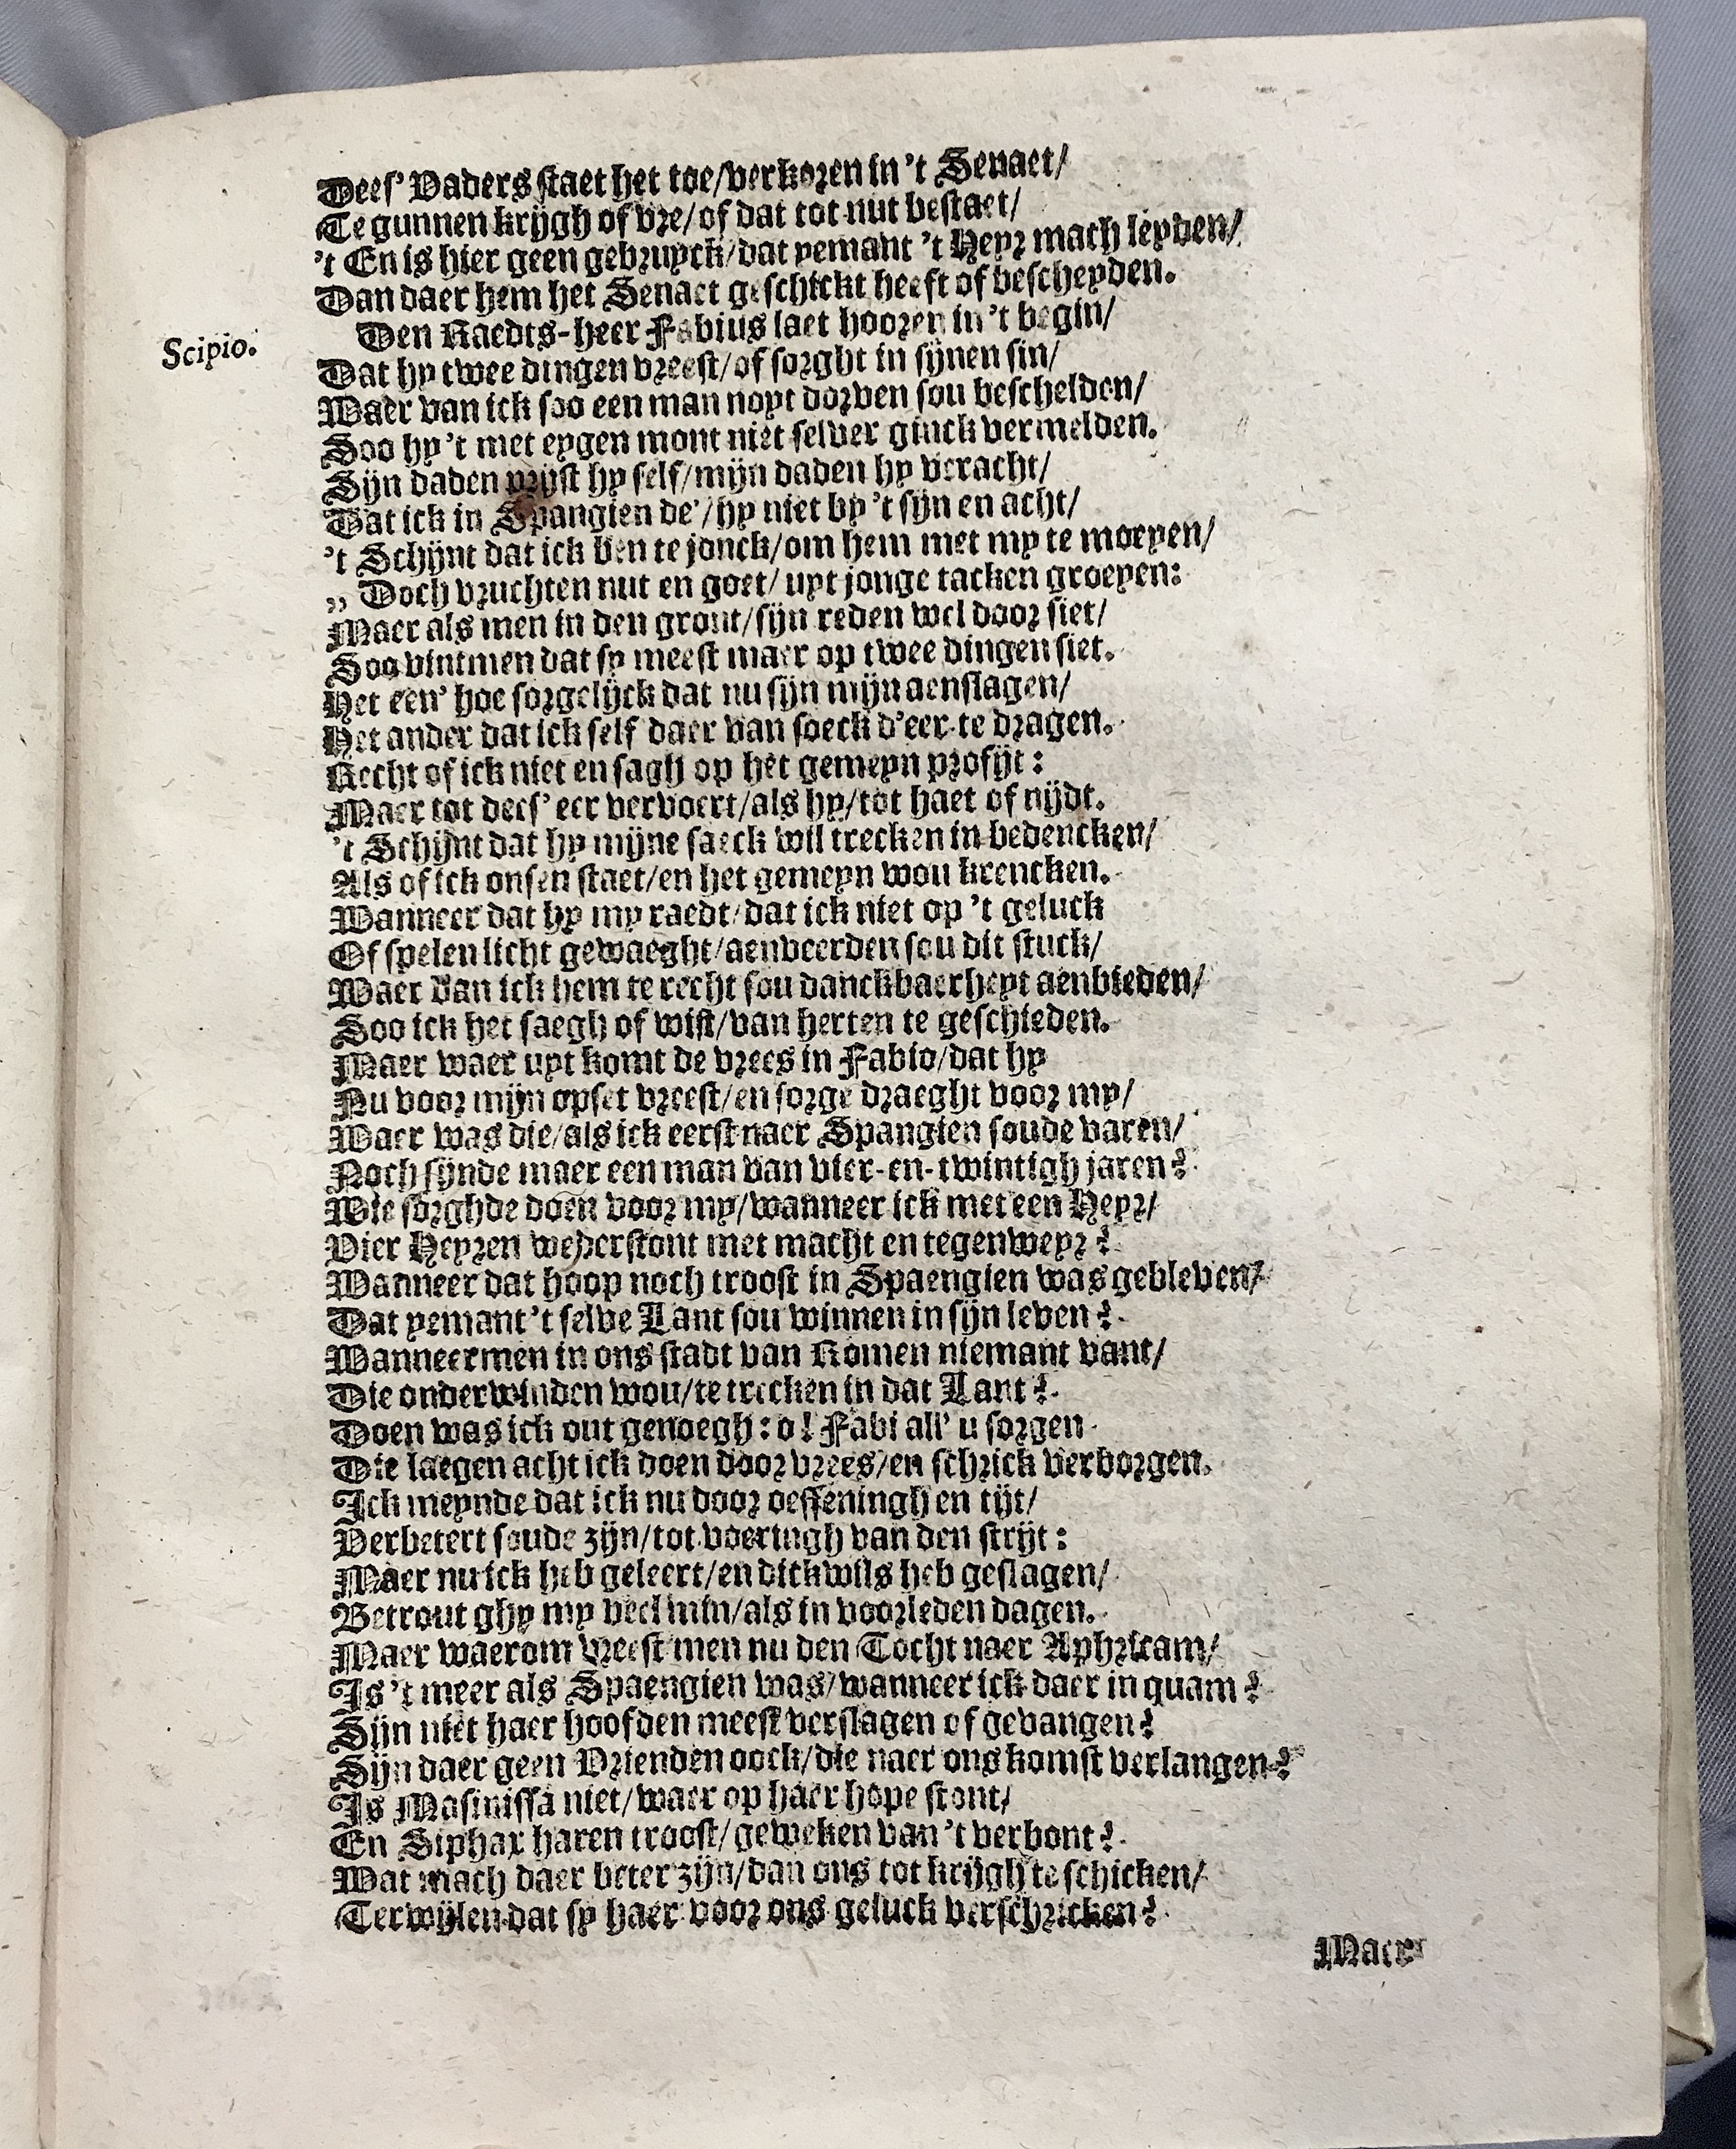 Dees' Vaders staet het toe/verkoren in 't Senaet/
Te gunnen krijgh of vre/of dat tot nut bestaet/
't En is hier geen gebruyck/dat yemant 't Heyr mach leyden/
Dan daer hem het Senaet geschickt heeft of bescheyden.
Scipio. Den Raedts-heer Fabius laet hooren in 't begin/
Dat hy twee dingen vreest/of sorght in sijnen sin/
Waer van ick soo een man noyt dorven sou beschelden/
Soo hy 't met eygen mont niet selver ginck vermelden.
Sijn daden prijst hy self/mijn daden hy veracht/
Dat ick in Spangien de'/hy niet by 't sijn en acht/
't Schijnt dat ick ben te jonck/om hem met my te moeyen/
„ Doch vruchten nut en goet/ uyt jonge tacken groeyen:
Maer als men in den gront/sijn reden wel door siet/
Soo vintmen dat sy meest maer op twee dingen siet.
Het een' hoe sorgelijck dat nu sijn mijn aenslagen/
Het ander dat ick self daer van soeck d'eer te dragen.
Recht of ick niet en sagh op het gemeyn profijt:
Maer tot dees' eer vervoert/als hy/tot haet of nijdt.
't Schijnt dat hy mijne saeck wil trecken in bedencken/
Als of ick onsen staet/en het gemeyn wou krencken.
Wanneer dat hy my raedt/dat ick niet op 't geluck
Of spelen licht gewaeght/aenveerden sou dit stuck/
Waer van ick hem te recht sou danckbaerheyt aenbieden/
Soo ick het saegh of wist/van herten te geschieden.
Maer waer uyt komt de vrees in Fabio/dat hy
Nu voor mijn opset vreest/en sorge draeght voor my/
Waer was die/als ick eerst naer Spangien soude varen/
Noch sijnde maer een man van vier-en-twintigh jaren?
Wie sorghde doen voor my/wanneer ick met een Heyr/
Vier Heyren wederstont met macht en tegenweyr?
Wanneer dat hoop noch troost in Spaengien was gebleven/
Dat yemant 't selve Lant sou winnen in sijn leven?
Wanneermen in ons stadt van Romen niemant vant/
Die onderwinden wou/te trecken in dat Lant?
Doen was ick out genoegh: o! Fabi all' u sorgen
Die laegen acht ick doen door vrees/en schrick verborgen.
Ick meynde dat ick nu door oeffeningh en tijt/
Verbetert soude zijn/tot voeringh van den strijt:
Maer nu ick heb geleert/en dickwils heb geslagen/
Betrout ghy my veel min/als in voorleden dagen.
Maer waerom vreest men nu den Tocht naer Aphricam/
Is 't meer als Spaengien was/wanneer ick daer in quam?
Sijn niet haer hoofden meest verslagen of gevangen?
Sijn daer geen Vrienden oock/die naer ons komst verlangen?
Is Masinissa niet/waer op haer hope stont/
En Siphax haren troost/geweken van 't verbont?
Wat mach daer beter zijn/dan ons tot krijgh te schicken/
Terwijlen dat sy haer voor ons geluck verschricken?
Maer